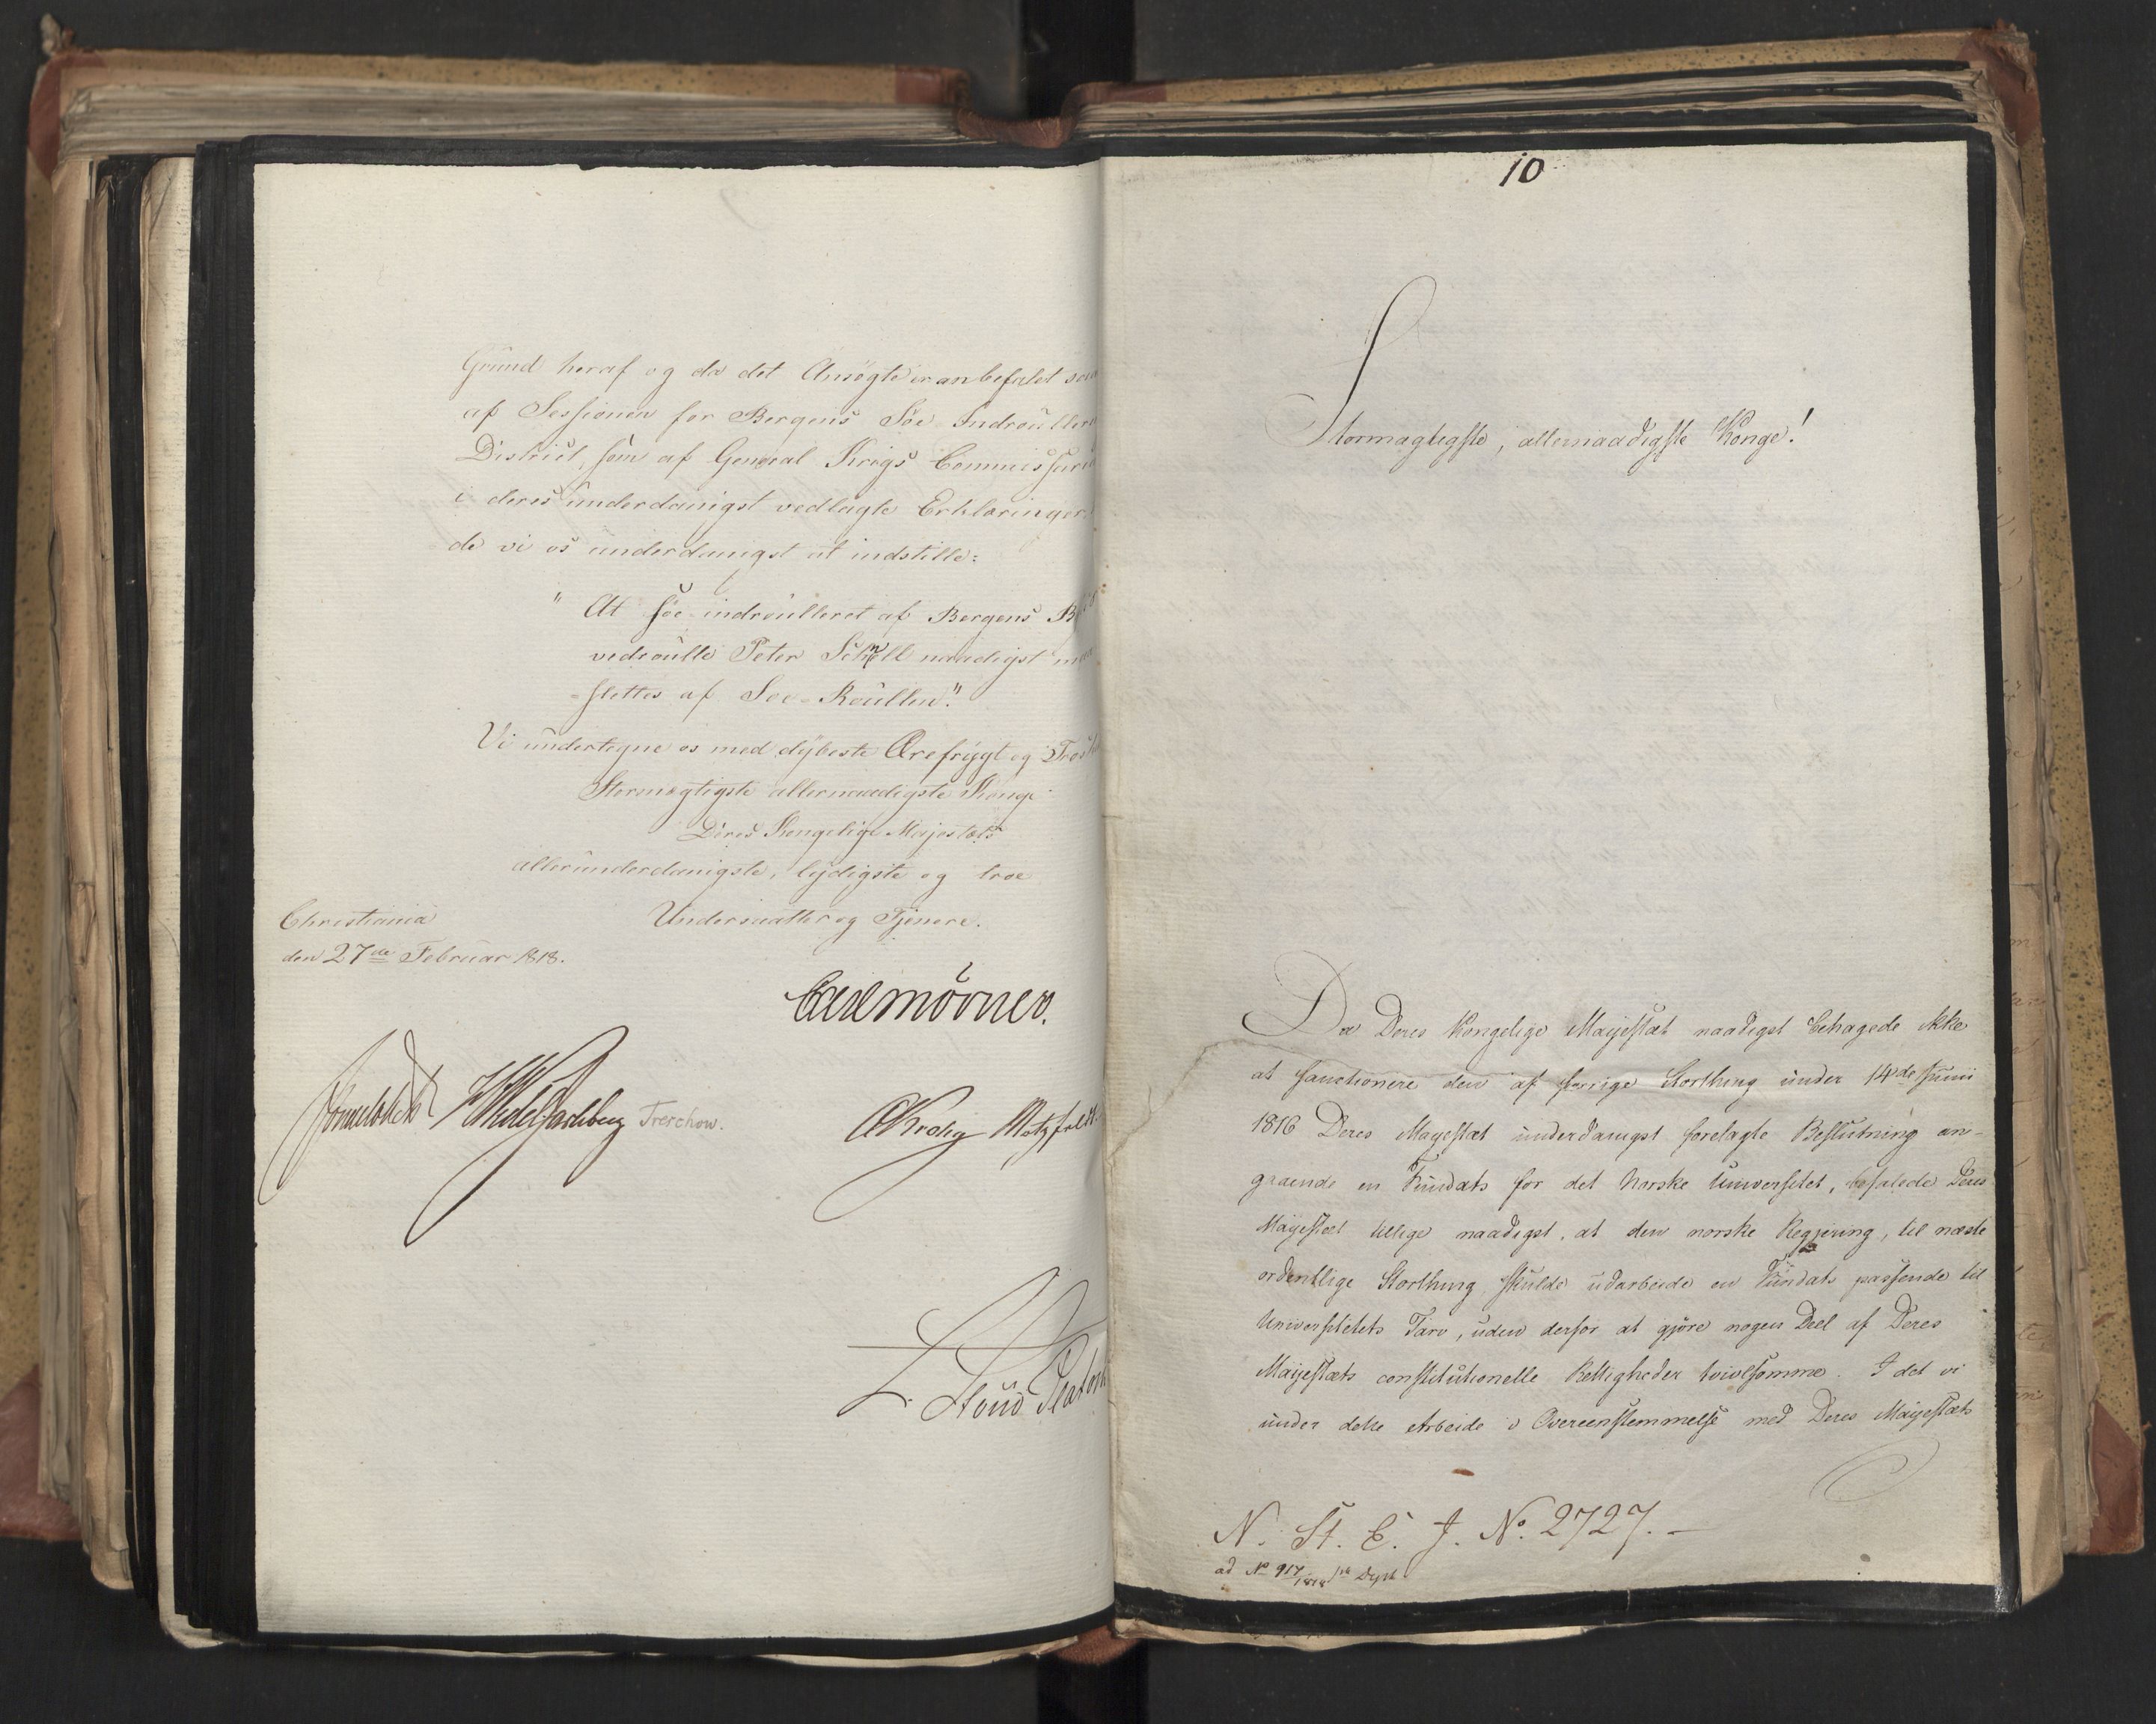 Grund heraf og da det Ansøgte er anbefalet saa
af Sessionen for Bergens Søe-Indroullerings
District, som af General Krigs Commissaria
i deres underdanigst vedlagte Erklæringer,
de vi os underdanigst at indstille:
" At søe-indroulleret af Bergens
vedroulle Peter Schnell naadigst maa
slettes af Søe-Roullen."
Vi undertegne os med dybeste Ærefrygt og Troskab
Stormægtigste allernaadigste Konge
Deres Kongelige Majestæts
allerunderdanigste, lydigste og troe
Christiania
Undersaatter og Tjenere.
den 27de Februar 1818.
Carl Mörner.
Sommerhielm HWedelJarlsberg Treschow.
CKrohg Motzfeldt.
L. Stoud Platou
10
Stormægtigste, allernaadigste Konge!
Da Deres Kongelige Mayestæt naadigst behagede ikke
at sanctionere den af forrige Storthing under 14de Juni
1816 Deres Mayestæt underdanigst forelagte Beslutning an-
gaaende en Fundats for det Norske Universitet, befalede Deres
Mayestæt tillige naadigst, at den norske Regjering, til næste
ordentlige Storthing skulde udarbeide en Fundats passende til
Universitetets Tarv, uden derfor at gjøre nogen Deel af Deres
Mayestæts constitutionelle Rettigheder tvivlsomme. I det vi
under dette Arbeide i Overeensstemmelse med Deres Mayestæts
N. St. E. J. No. 2727.-
ad No 917/1818 1ste Dept.